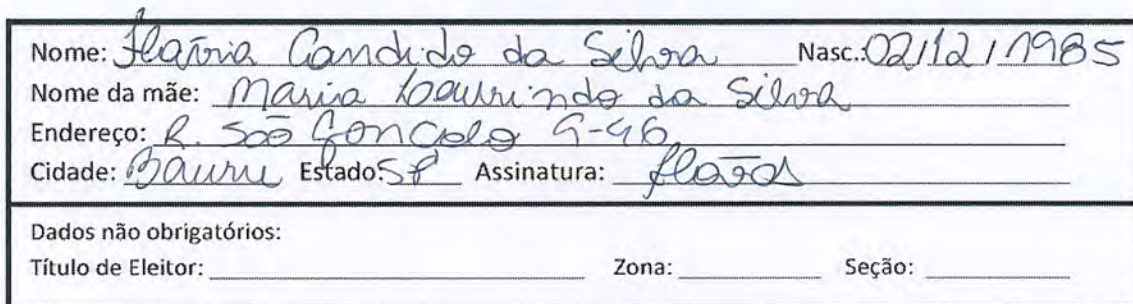 Nome: Flavia Candido da Silva Nasc.: 02/12/1985
Nome da mãe: Maria Laurindo da Silva
Endereço: R. São Gonçalo 9-96
Cidade: Bauru Estado: SP Assinatura: Flavia
Dados não obrigatórios:
Título de Eleitor: Zona: Seção: